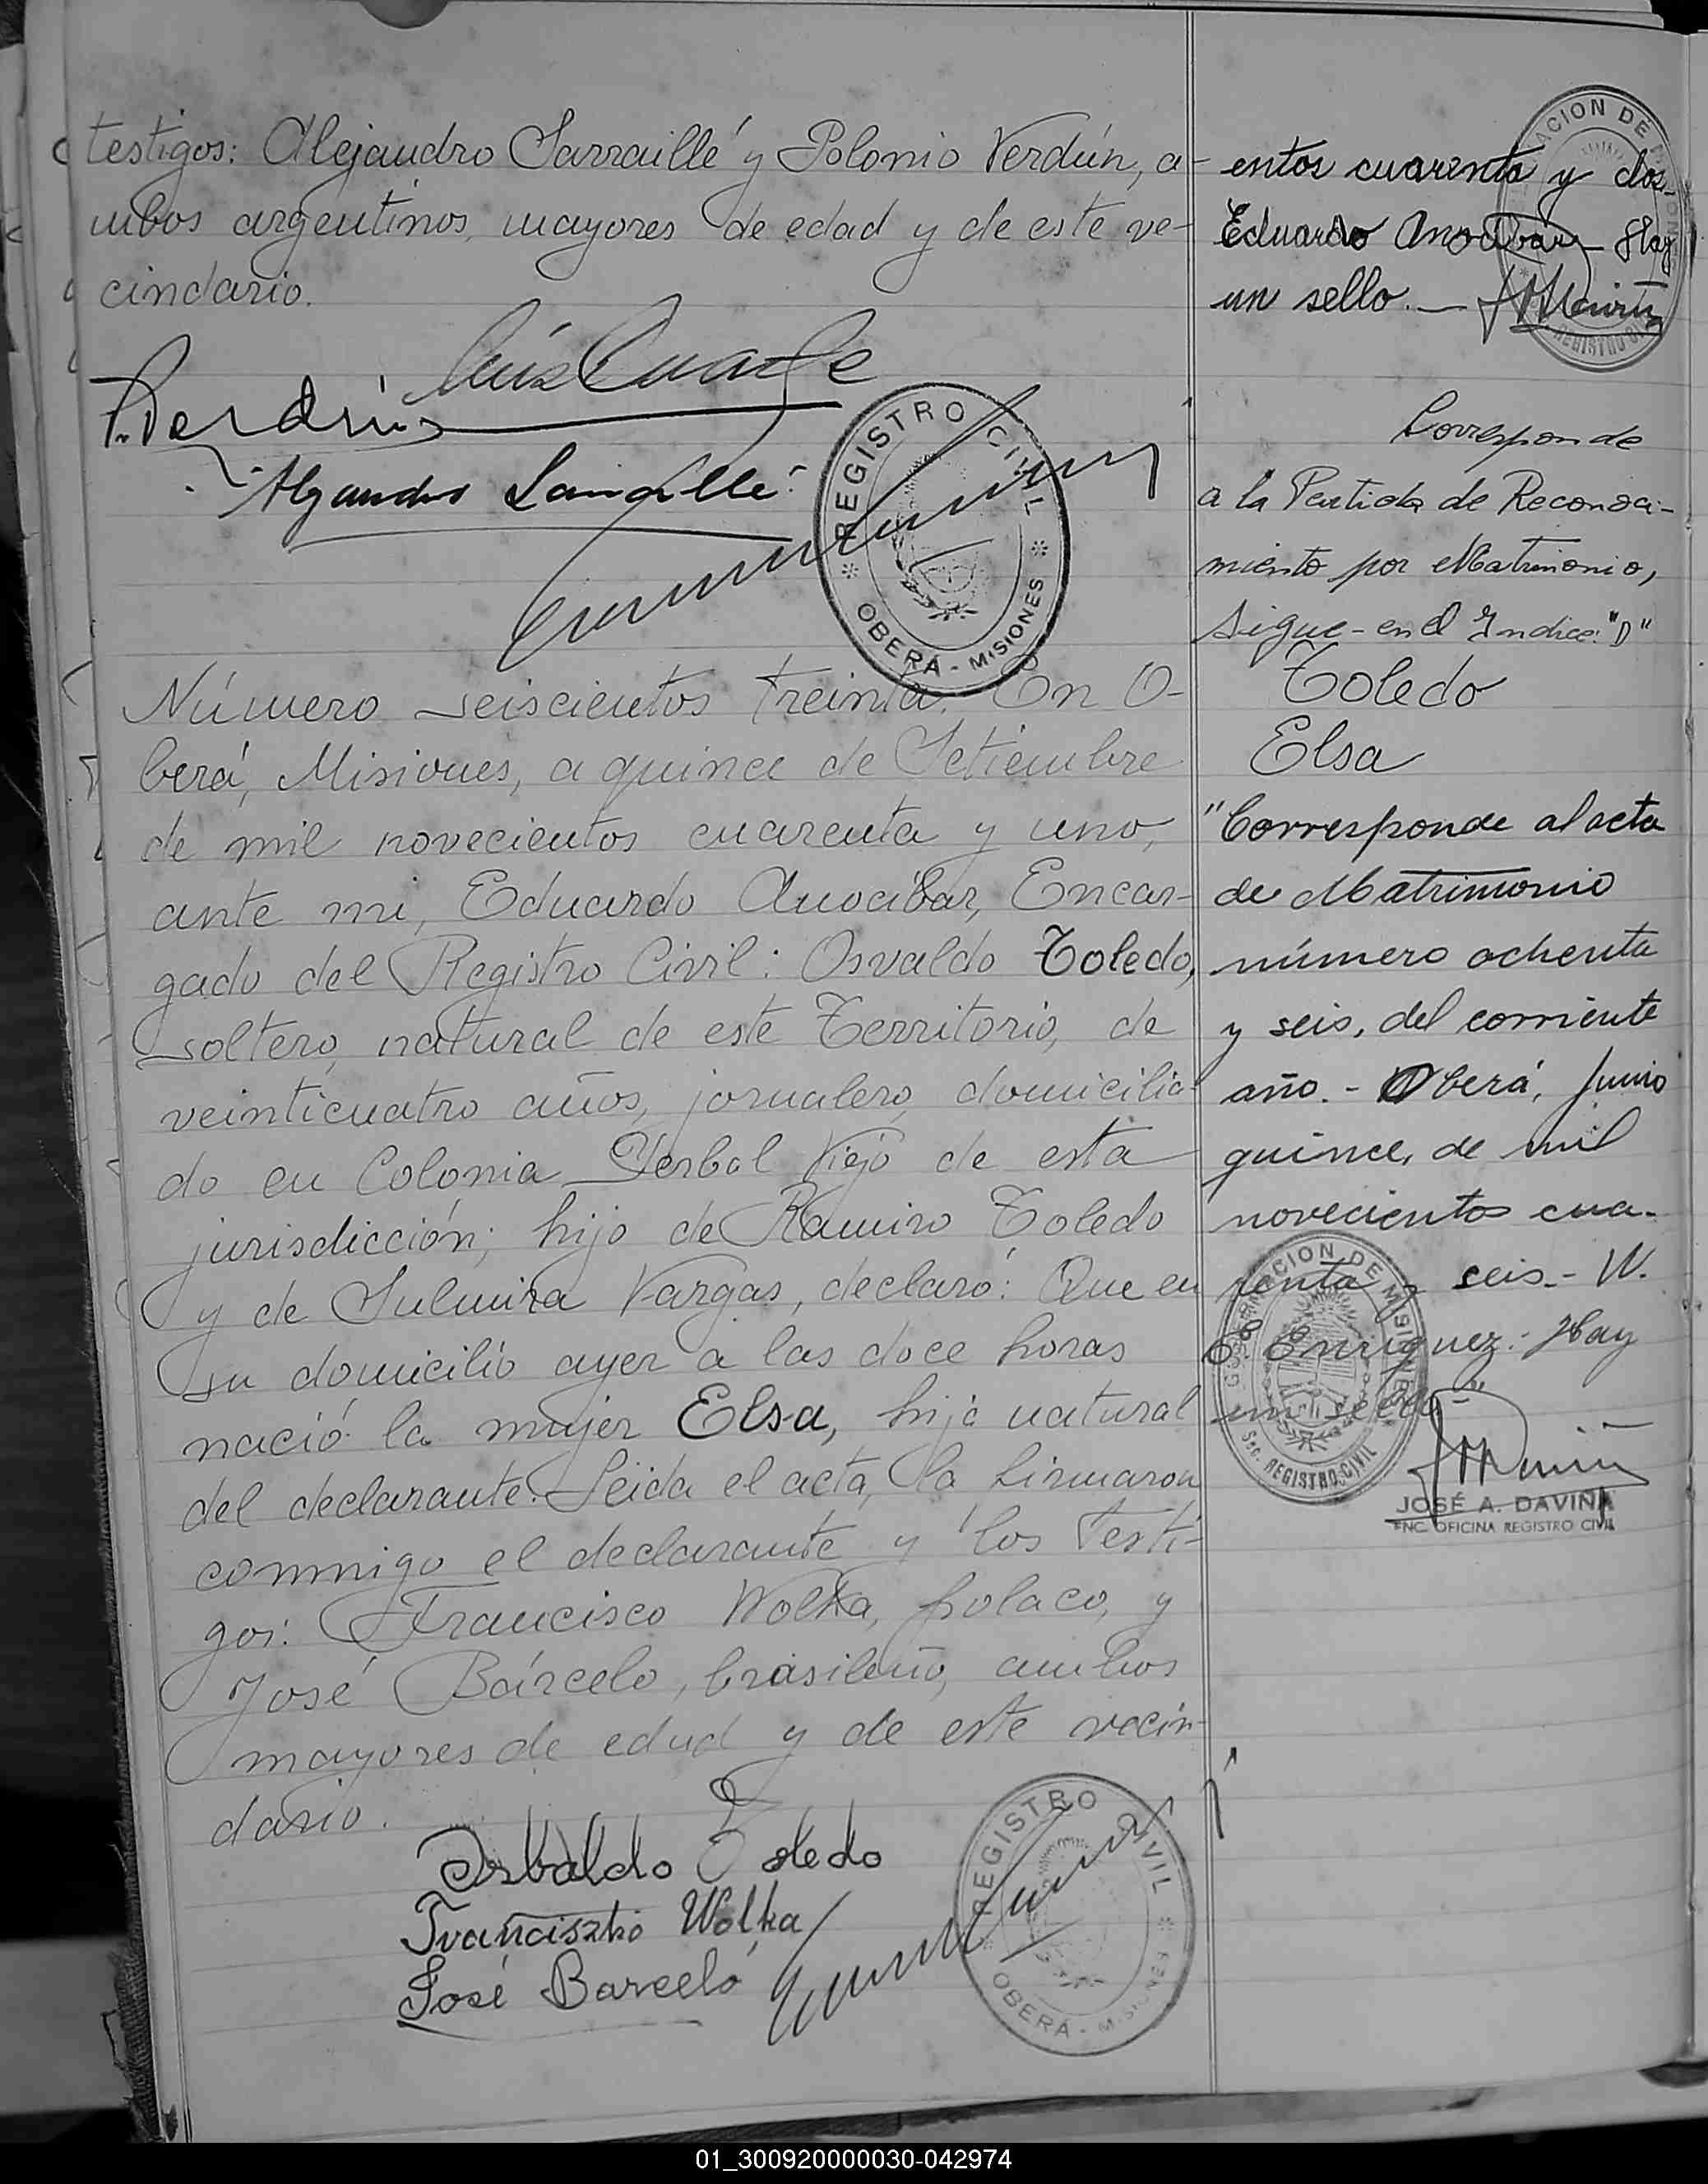 testigos: Alejandro Sarraillé y Polonio Verdún, a-
mbos argentinos, mayores de edad y de este ve-
cindario.
P. Verdún
REGISTRO CIVIL
OBERÁ - MISIONES
Número seiscientos treinta. En O-
berá, Misiones, a quince de Setiembre
de mil novecientos cuarenta y uno,
ante mi, Eduardo Anocíbar, Encar-
gado del Registro Civil: Osvaldo Toledo,
soltero, natural de este Territorio, de
veinticuatro años, jornalero, domicilia-
do en Colonia Yerbal Viejo de esta
jurisdicción; hijo de Ramiro Toledo
y de Sulmira Vargas, declaró: Que en
su domicilio ayer a las doce horas
nació la mujer Elsa, hija natural
del declarante. Leída el acta, la firmaron
conmigo el declarante y los testi-
gos: Francisco Wolka, polaco, y
José Bárcelo, brasileño, ambos
mayores de edad y de este vecin-
dario.
Osbaldo Toledo
Franciszko Wolka
José Barceló
REGISTRO CIVIL
OBERÁ - MISIONES
entos cuarenta y dos.-
Eduardo Anocíbar - Hay
un sello. -
Corresponde
a la Partida de Reconoci-
miento por Matrimonio,
sigue - en el Indice: "D"
Toledo
Elsa
"Corresponde al acta
de Matrimonio
número ochenta
y seis, del corriente
año. - Oberá, Junio
quince, de mil
novecientos cua-
renta y seis. - W.
E. Enriquez. Hay
un sello. -"
GOBERNACION DE MISIONES
Sec. REGISTRO CIVIL
JOSÉ A. DAVIÑA
ENC. OFICINA REGISTRO CIVIL
01_300920000030-042974